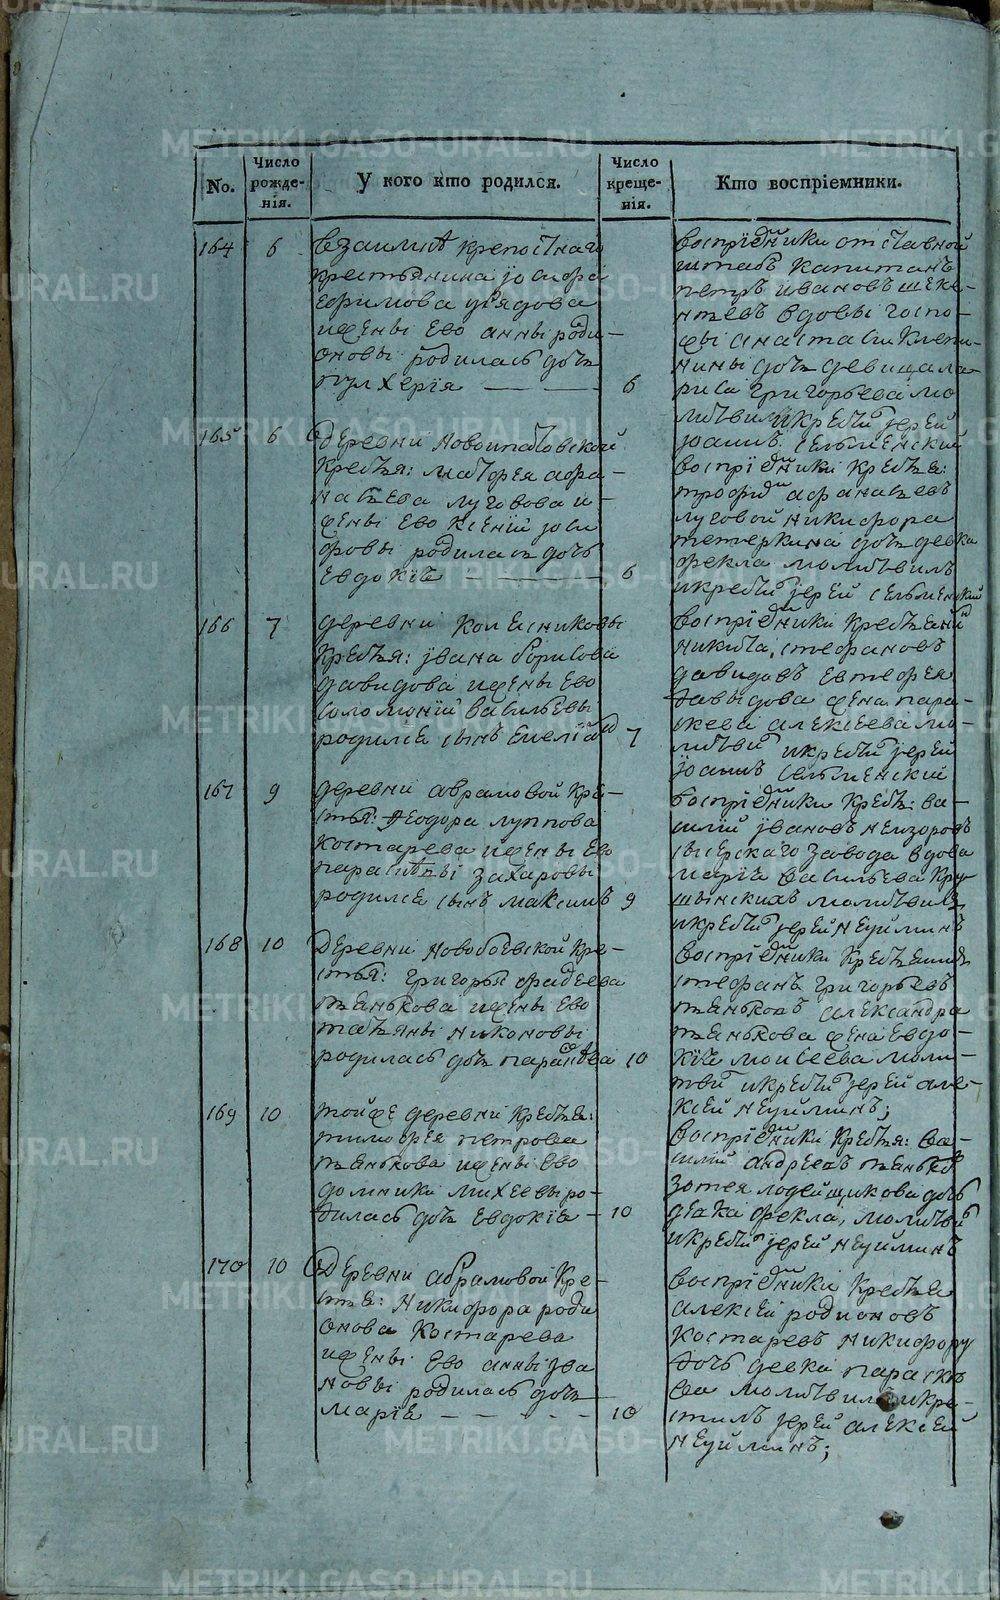 METRIKI.GASO-URAL.RU
No.
Число рожде-нія.
У кого кто родился.
Число креще-нія.
Кто воспріемники.
164
6
взаимке крепостнаго
крестьянина іосифа
Ефимова
ижены Ево анны роди-
оновы родилась дочь
пулхерія
6
воспріемники отставной
штабъ капитанъ
петръ ивановъ
вдовы госпо-
жи анастасіи
дочь девица ла-
риса григорьева мо
литвилъ икрестилъ іерей
іоаннъ Сельменскій
165
6
деревни
крестья: матфея афа-
насьева луговова и-
жены Ево ксеніи іоси
фовы родилась дочь
Евдокія
6
воспріемники крестья:
трофимъ афанасьевъ
луговой никифора
тетеркина дочь девка
фекла молитвилъ
икрестилъ іерей Сельменскій
166
7
деревни колесниковы
крестья: івана борисова
давидова ижены Ево
соломоніи васильевы
родился сынъ Емеліанъ
7
воспріемники
никита стефановъ
давидовъ Евтефея
давыдова жена пара-
скева алексеева мо-
литвилъ икрестилъ іерей
іоаннъ Сельменскій
167
9
деревни абрамовой кре-
стья: Феодора луппова
костарева ижены Ево
парасквы захаровы
родился сынъ максимъ
9
воспріемники крестья: ва-
силій івановъ
сысерскаго завода вдова
марія васильева
молитвилъ
икрестилъ іерей неуйминъ
168
10
деревни новобоевской кре-
стья: григорья фадеева
пьянкова ижены Ево
татьяны никоновы
родилась дочь парасковья
10
воспріемники
стефанъ григорьевъ
пьянковъ александра
пьянкова жена Евдо-
кія моисеева моли-
твилъ икрестилъ іерей але-
ксей неуйминъ;
169
10
тойже деревни крестья:
тимофея петрова
пьянкова ижены Ево
домники михеевы ро-
дилась дочь Евдокія
10
воспріемники крестья: ва-
силій андреевъ пьянковъ
зотея лодейщикова дочь
девка фекла, молитвилъ
икрестилъ іерей неуйминъ
170
10
деревни абрамовой кре-
стья: никифора роди
онова костарева
ижены Ево анны іва
новы родилась дочь
марія
10
воспріемники крестья
алексей родионовъ
костаревъ никифору
дочь девка параскѣ
ва молитвилъ икре-
стилъ іерей алексей
неуйминъ;